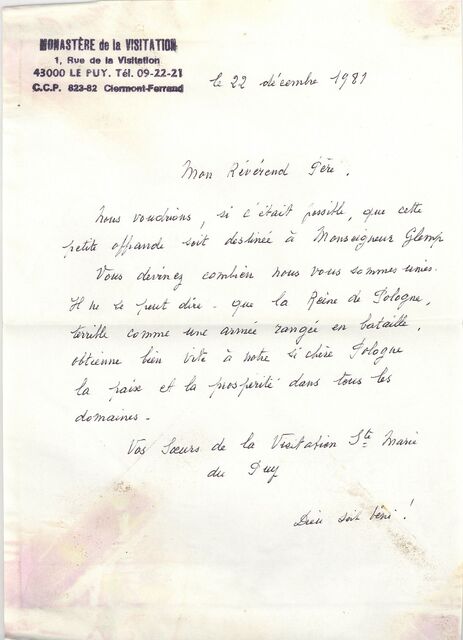 MONASTÈRE de la VISITATION
1, Rue de la Visitation
43000 LE PUY. Tél. 09-22-21
C.C.P. 823-82 Clermont-Ferrand
le 22 décembre 1981
Mon Révérend Père,
Nous voudrions, si c'était possible, que cette
petite offrande soit destinée à Monseigneur Glemp
Vous devinez combien nous vous sommes unies.
Il ne se peut dire - que la Reine de Pologne,
terrible comme une armée rangée en bataille,
obtienne bien vite à notre si chère Pologne
la paix et la prospérité dans tous les
domaines -
Vos Sœurs de la Visitation Ste Marie
du Puy
Dieu soit béni !